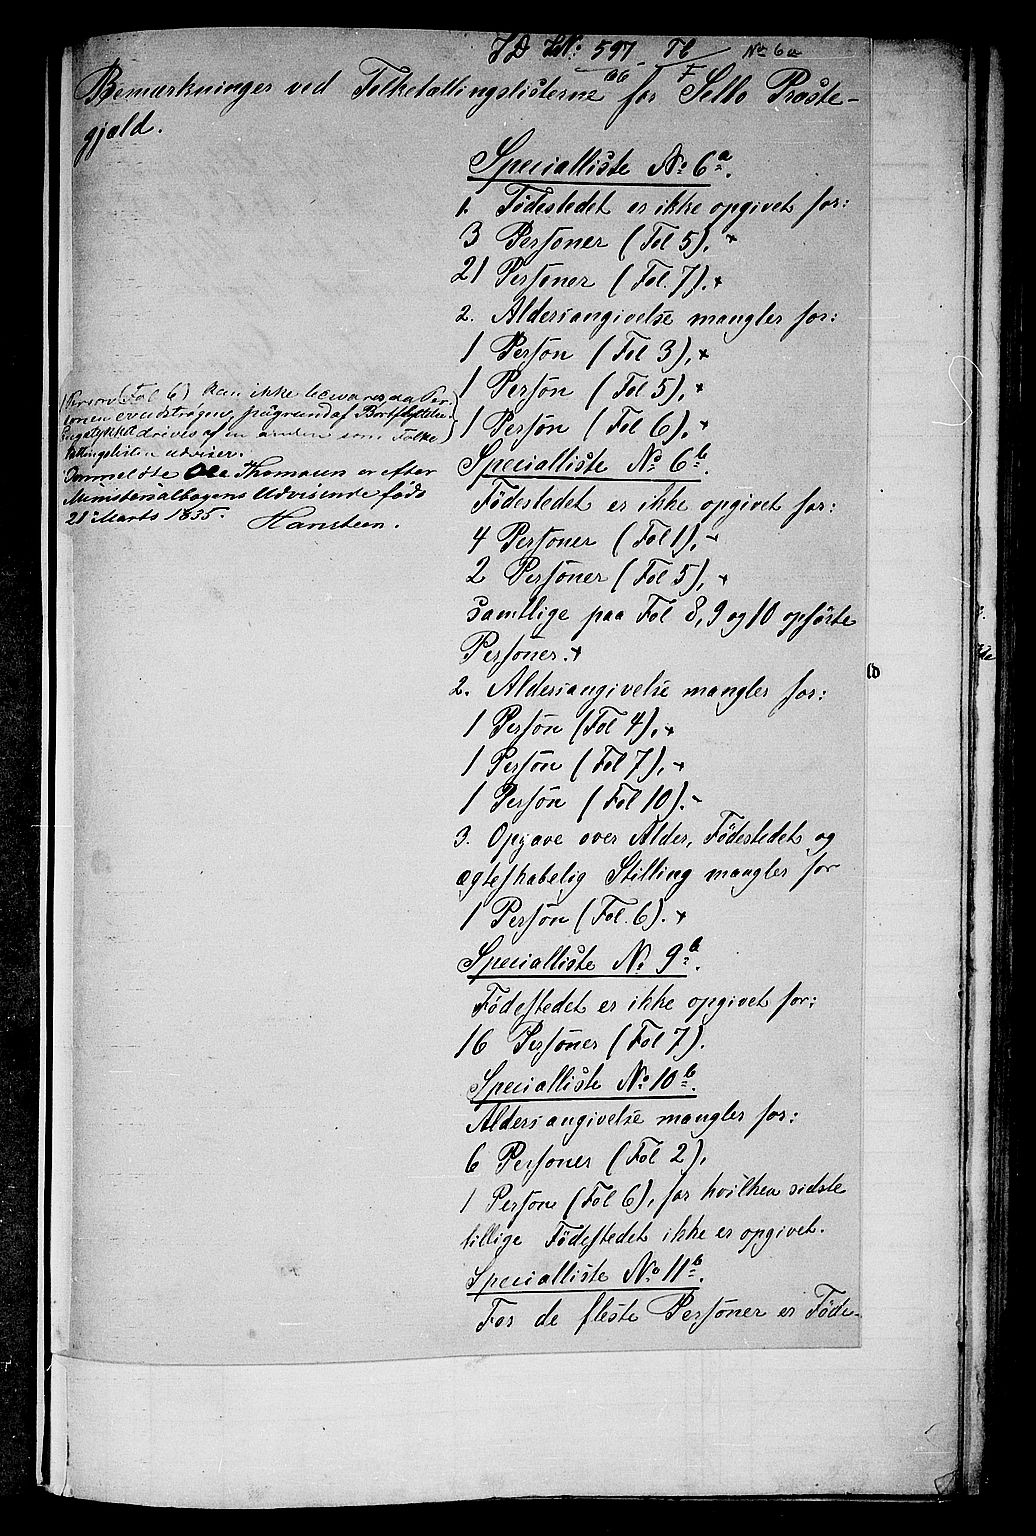 JD No. 597 Tb No 6a
66 F
Bemærkninger ved Folketællingslisterne for Selbo Præste-
gjæld.
Specialliste No. 6a.
1. Fødestedet er ikke opgivet for:
3 Personer (Fol 5). +
21 Personer (Fol. 7). +
2. Aldersangivelse mangler for:
1 Person (Fol 3), +
1 Person (Fol 5), +
1 Person (Fol 6). +
1 Person (Fol 6) kan ikke besvares, paa Per-
sonen er udstrøgen, pågrund af Bortflyttelse.
drives af en anden som Folke
tællingslisten udviser.
Ole Thomasen er efter
Ministerialbogens Udvisende født
21 Marts 1835. Hansteen.
Specialliste No. 6b.
Fødestedet er ikke opgivet for:
4 Personer (Fol 1), +
2 Personer (Fol 5), +
samtlige paa Fol 8, 9 og 10 opførte
Personer. +
2. Aldersangivelse mangler for:
1 Person (Fol 4), +
1 Person (Fol 7), +
1 Person (Fol 10). +
3. Opgave over Alder, Fødestedet og
ægteskabelig Stilling mangler for
1 Person (Fol. 6). +
Specialliste No. 9b.
Fødestedet er ikke opgivet for:
16 Personer (Fol 7).
Specialliste No. 10b.
Aldersangivelse mangler for:
6 Personer (Fol 2),
1 Person (Fol 6), for hvilken sidste
tillige Fødestedet ikke er opgivet.
Specialliste No. 11b.
For de fleste Personer er Føde-